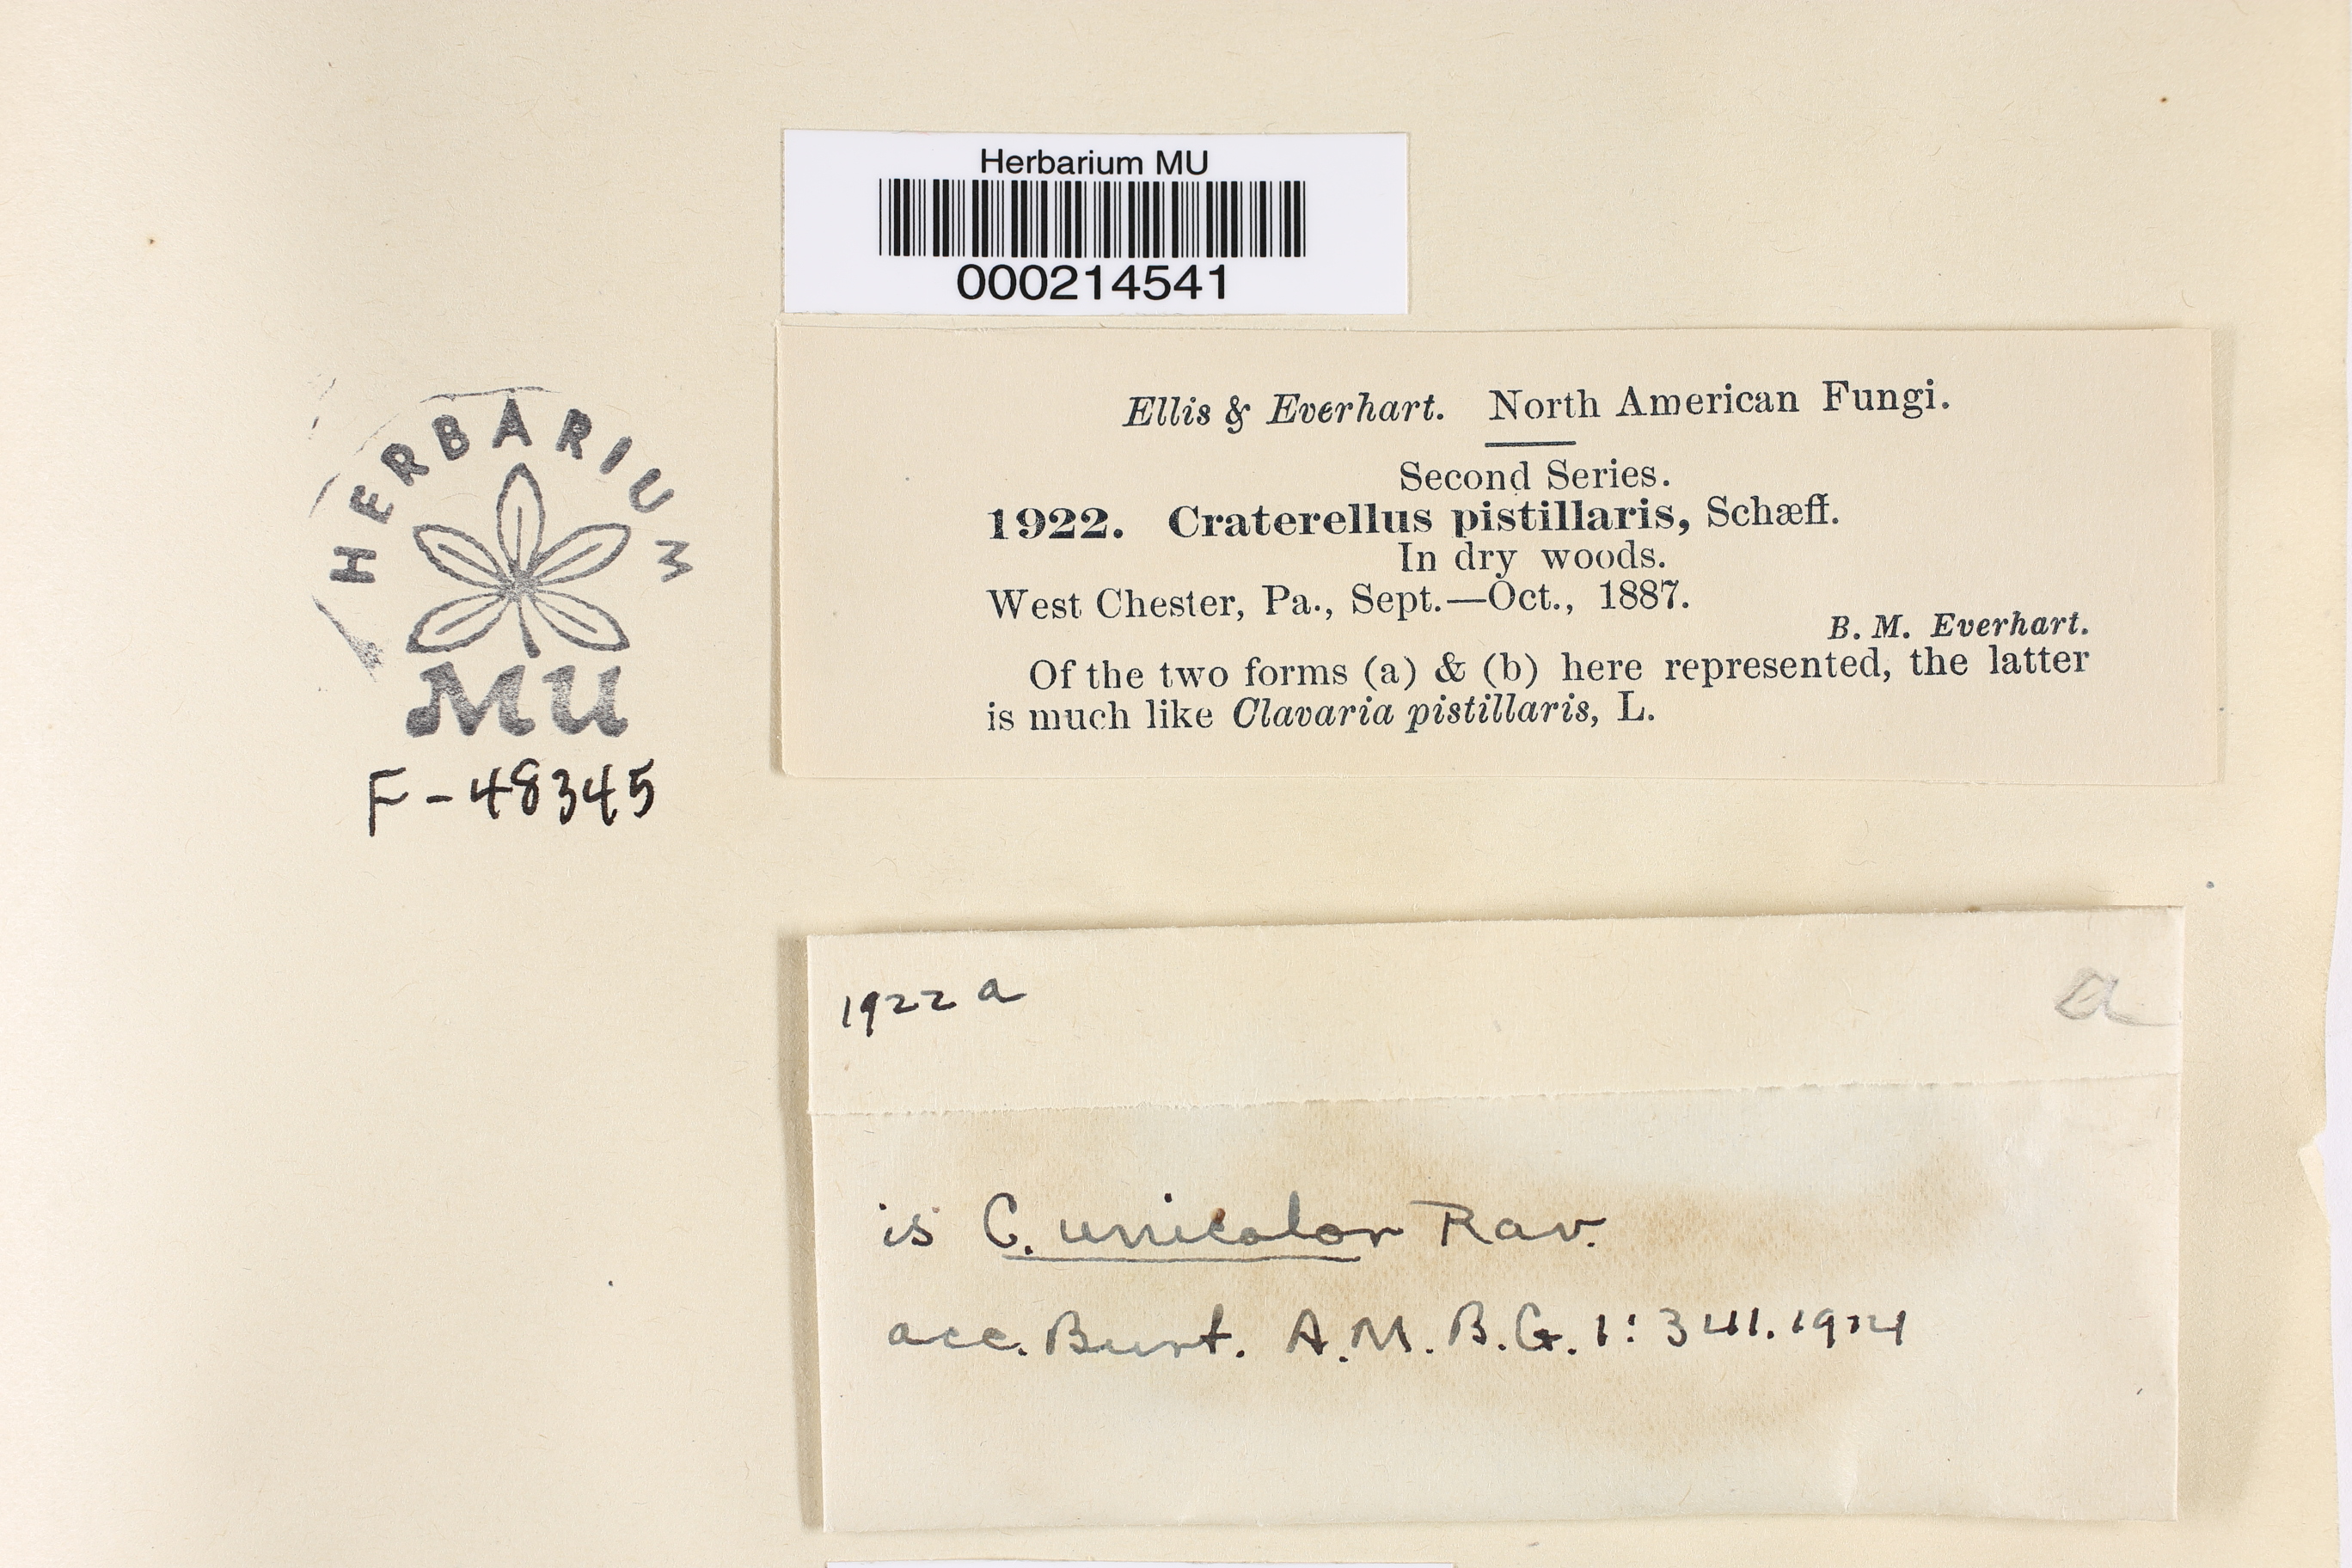 Herbarium MU
000214541
HERBARIUM
MU
F-48345
Ellis & Everhart. North American Fungi.
Second Series.
1922. Craterellus pistillaris, Schæff.
In dry woods.
West Chester, Pa., Sept.—Oct., 1887.
B. M. Everhart.
Of the two forms (a) & (b) here represented, the latter
is much like Clavaria pistillaris, L.
1922 a
a
is C. unicolor Rav.
acc. Burt. A.M.B.G. 1: 341. 1914